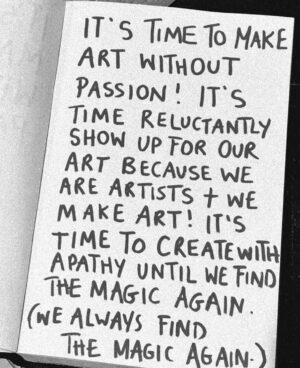 IT'S TIME TO MAKE
ART WITHOUT
PASSION! IT'S
TIME RELUCTANTLY
SHOW UP FOR OUR
ART BECAUSE WE
ARE ARTISTS + WE
MAKE ART! IT'S
TIME TO CREATE WITH
APATHY UNTIL WE FIND
THE MAGIC AGAIN.
(WE ALWAYS FIND
THE MAGIC AGAIN.)